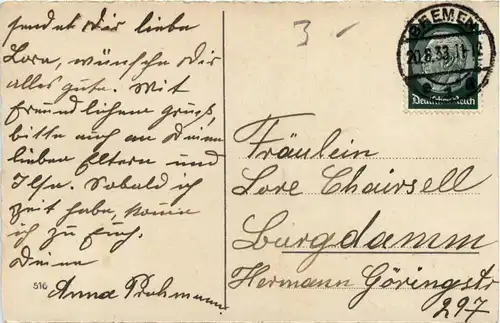 sendet Dir liebe
Lore, wünsche Dir
alles gute. Mit
freundlichem gruß,
bitte auch an Deinen
lieben Eltern und
Ilse. Sobald ich
zeit habe, komme
ich zu Euch.
Deine
Anna
516
3
BREMEN
20.8.33.
Deutsches Reich
Fräulein
Lore Chairsell
Burgdamm
Hermann Göringstr
297